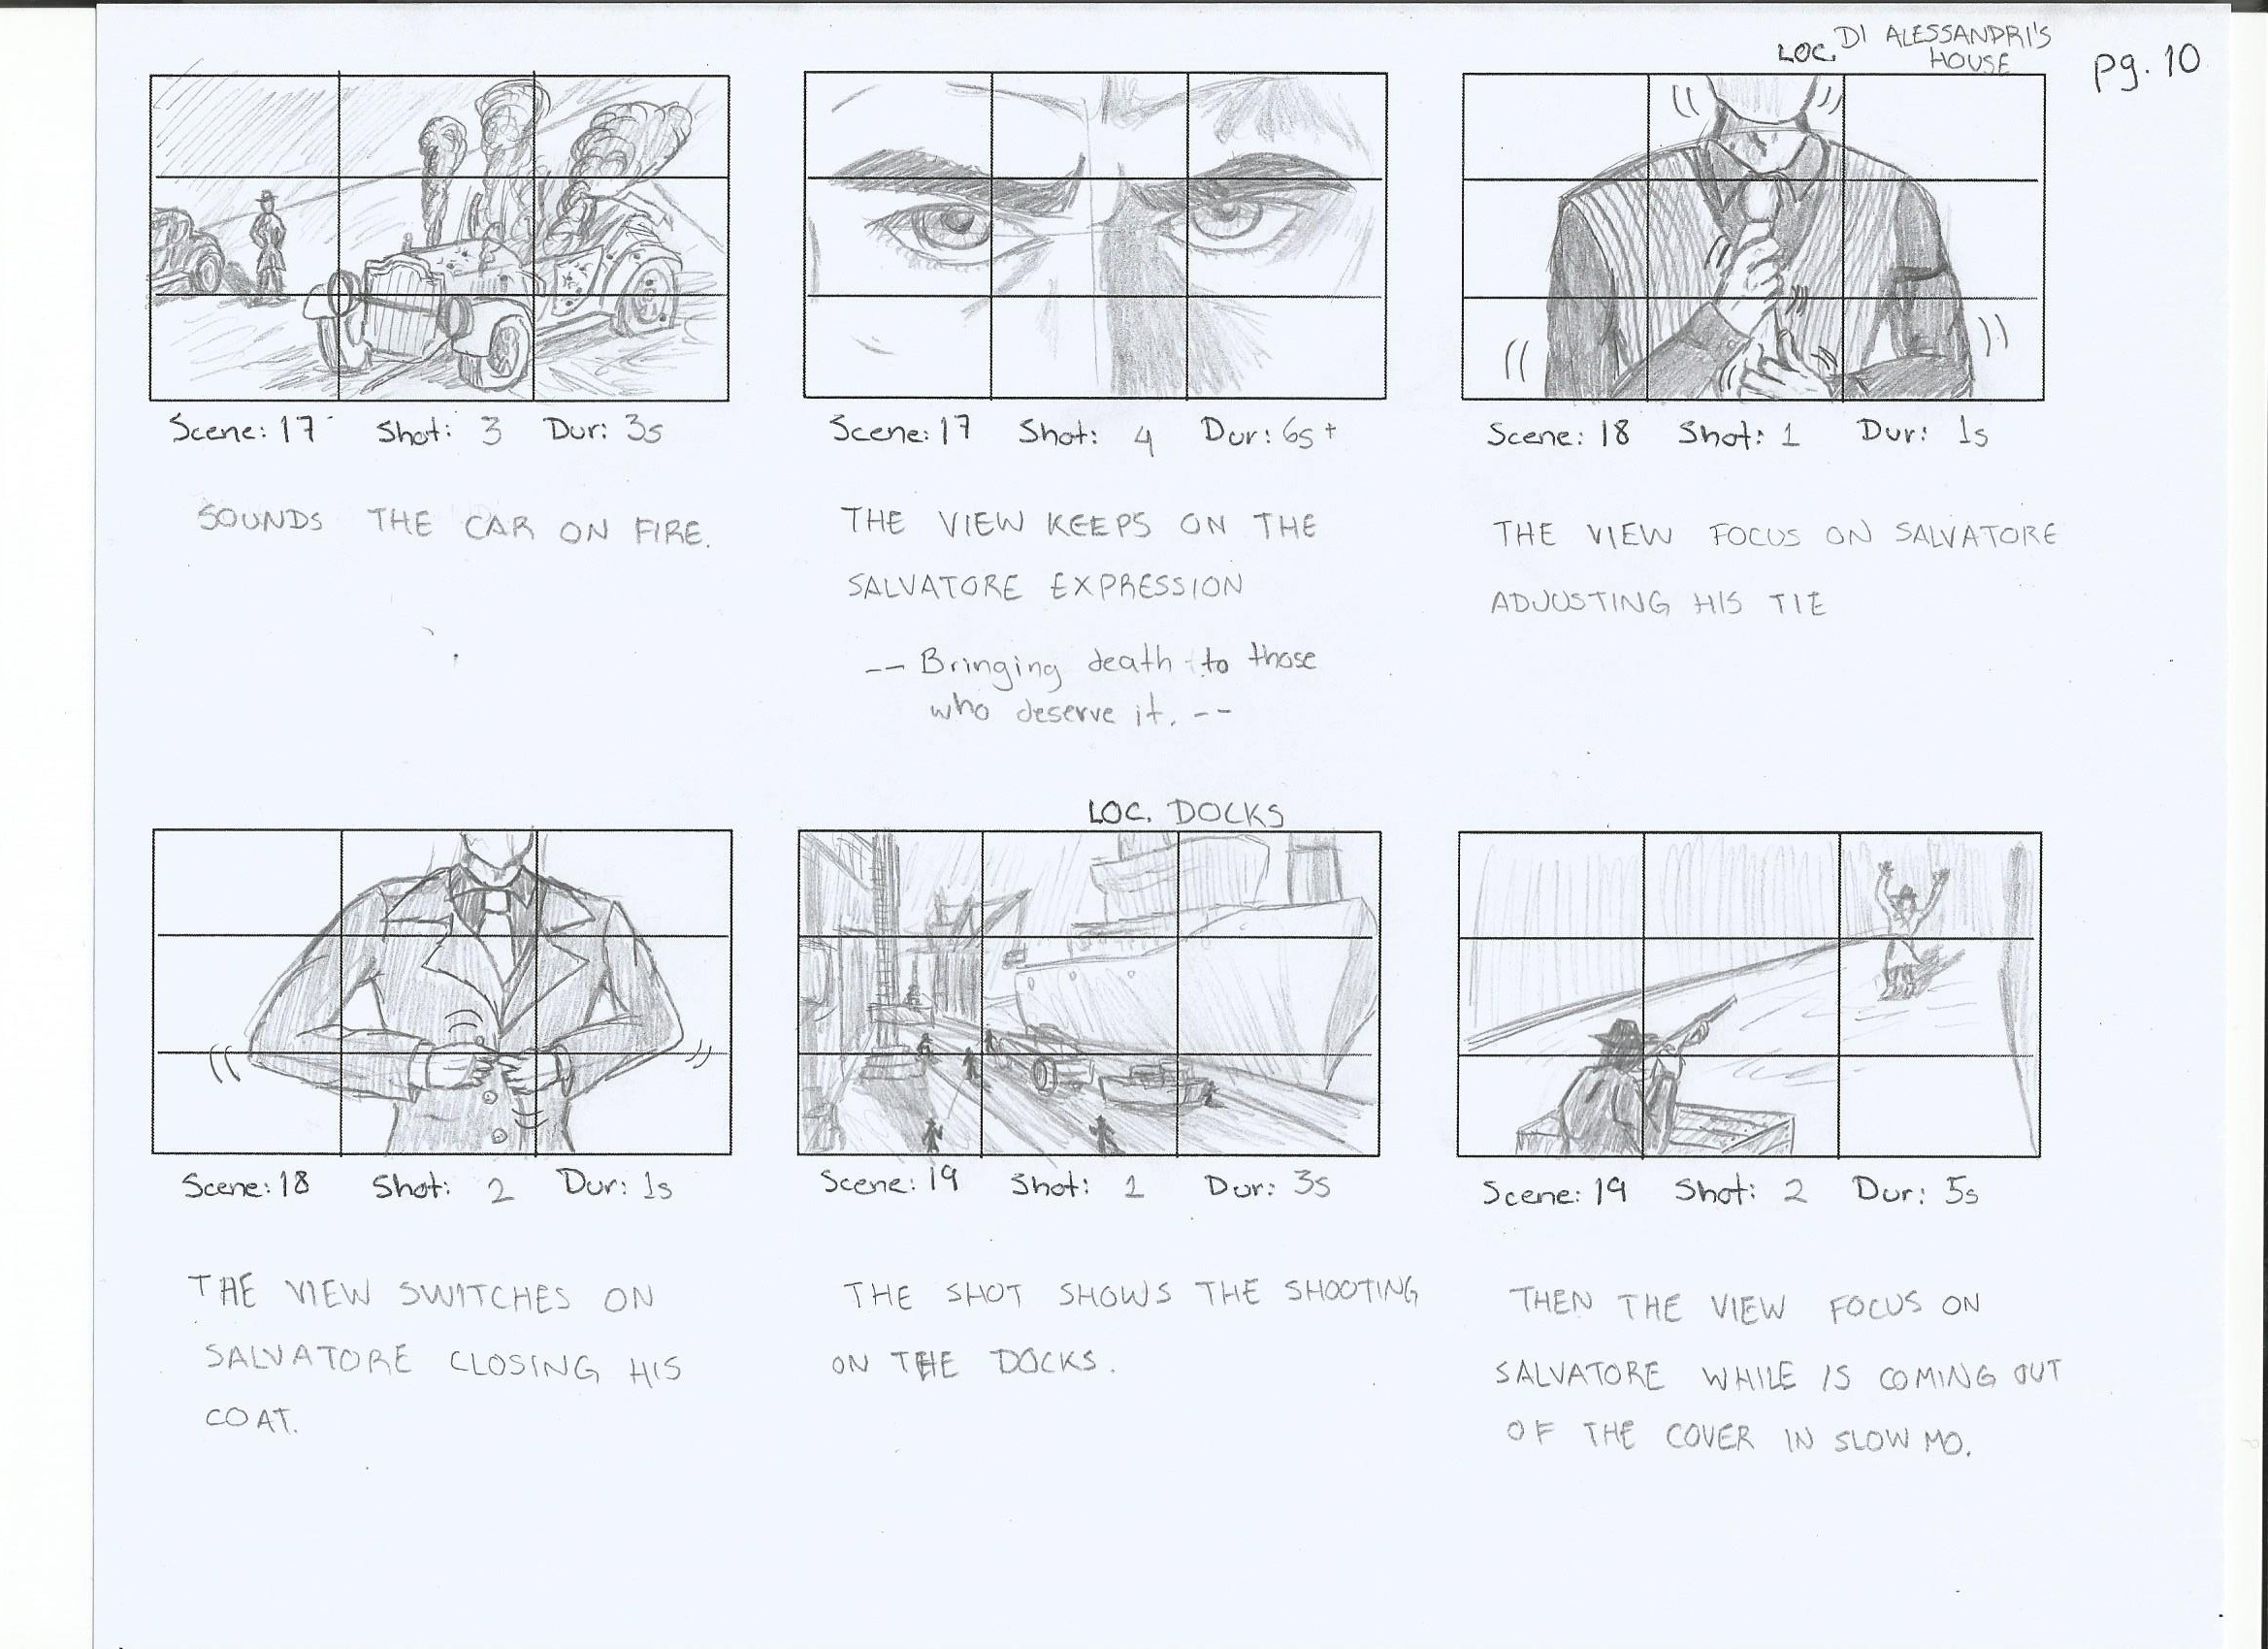 LOC. DI ALESSANDRI'S
HOUSE
pg. 10
Scene: 17 Shot: 3 Dur: 3s
SOUNDS THE CAR ON FIRE.
Scene: 17 Shot: 4 Dur: 6s+
THE VIEW KEEPS ON THE
SALVATORE EXPRESSION
-- Bringing death to those
who deserve it. --
Scene: 18 Shot: 1 Dur: 1s
THE VIEW FOCUS ON SALVATORE
ADJUSTING HIS TIE
Scene: 18 Shot: 2 Dur: 1s
THE VIEW SWITCHES ON
SALVATORE CLOSING HIS
COAT.
LOC. DOCKS
Scene: 19 Shot: 1 Dur: 3s
THE SHOT SHOWS THE SHOOTING
ON THE DOCKS.
Scene: 19 Shot: 2 Dur: 5s
THEN THE VIEW FOCUS ON
SALVATORE WHILE IS COMING OUT
OF THE COVER IN SLOW MO.